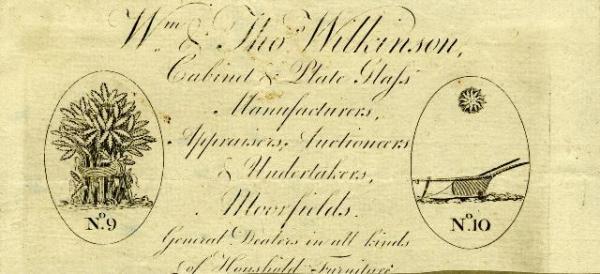 Wm & Thos Wilkinson,
Cabinet & Plate Glass
Manufacturers,
Appraisers, Auctioneers
& Undertakers,
Moorfields.
General Dealers in all kinds
of Houshold Furniture
No. 9
No. 10